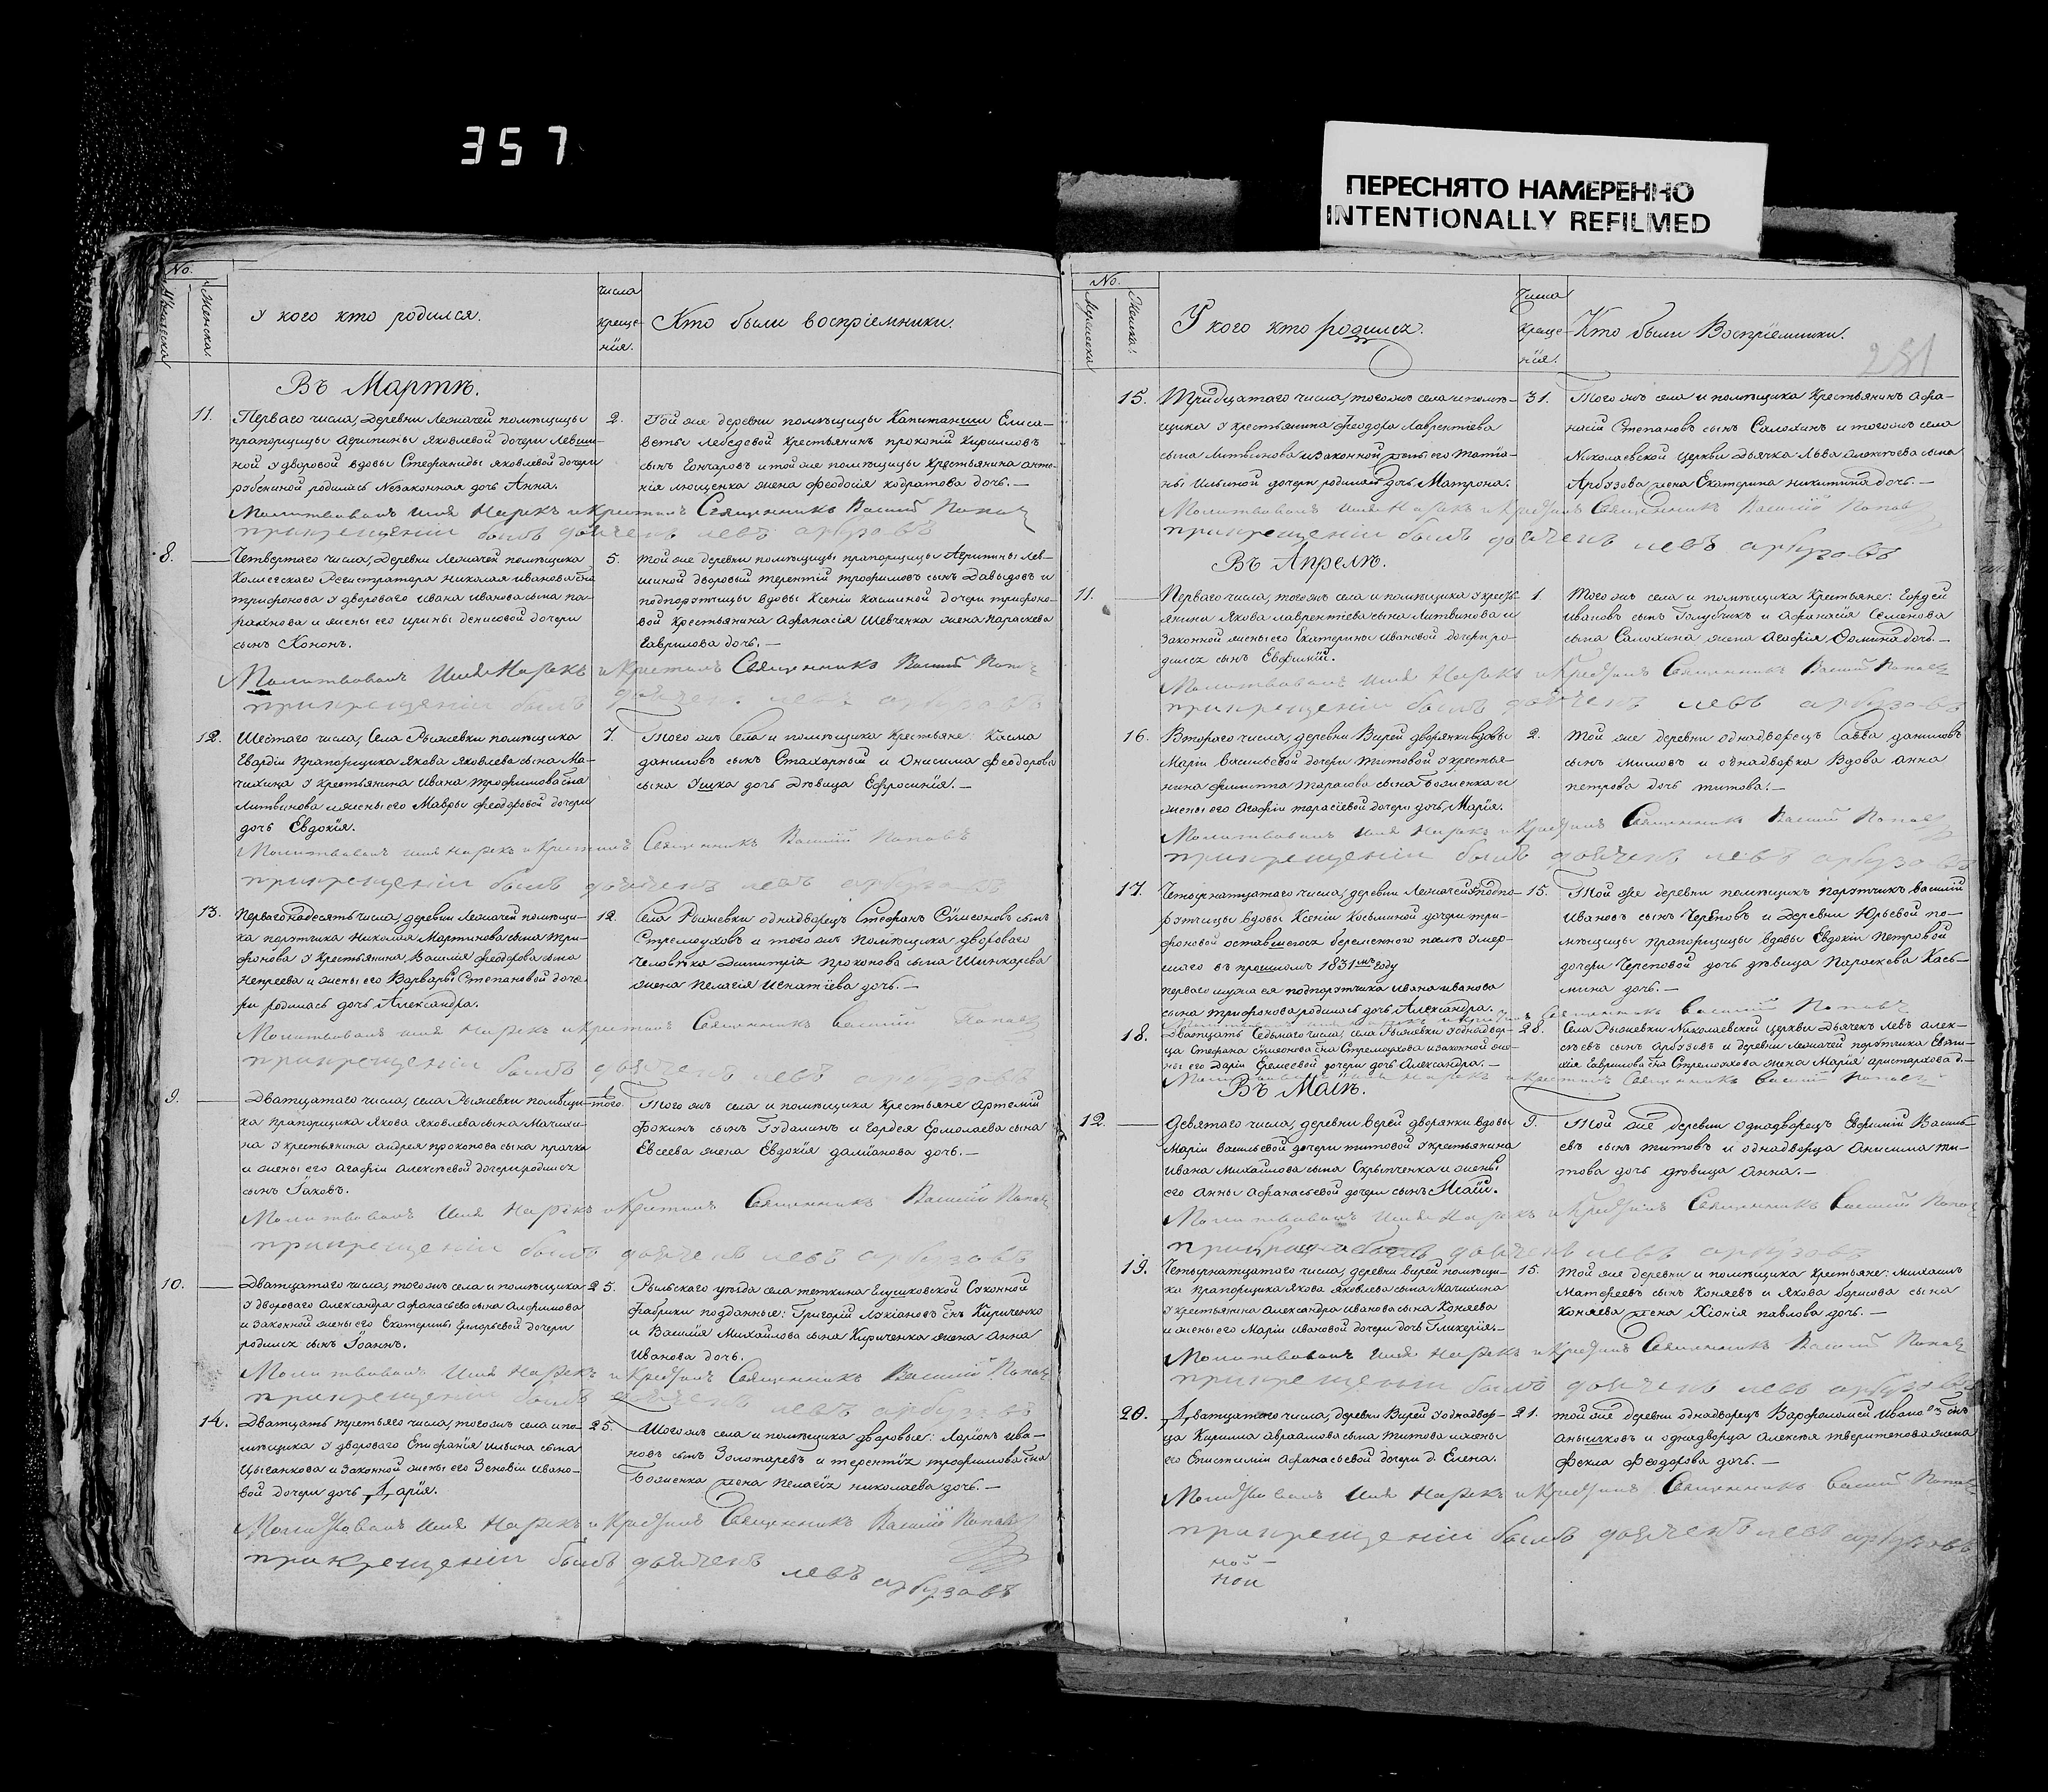 357
ПЕРЕСНЯТО НАМЕРЕННО
INTENTIONALLY REFILMED
No.
Мужеска
Женска
У кого кто родился.
числа крещенія.
Кто были воспріемники.
Въ Мартѣ.
11.
Перваго числа, деревни Лежачей помѣщицы
прапорщицы Агрипины Яковлевой дочери Левши-
ной у дворовой вдовы Стефаниды яковлевой дочери
родилась Незаконная дочь Анна.
2.
Той же деревни помѣщицы Капитанши Елиса-
веты Лебедовой крестьянинъ прокопій Кириловъ
сынъ Гончаровъ и той же помѣщицы крестьянина анто-
нія лющенка жена феодосія кодратова дочь. —
Молитвовалъ имя Нарекъ и крестилъ Священникъ Василий Поповъ
прикрещеніи былъ дьячекъ левъ арбузовъ
8.
Четвертаго числа, Деревни Лежачей помѣщика
Колежскаго Регистратора николая иванова сна
трифонова у двороваго ивана иванова сына
и жены его ирины денисовой дочери
сынъ Кононъ.
5.
той же деревни помѣщицы прапорщицы Агрипины Лев-
шиной дворовый терентій трофимовъ сынъ Давыдовъ и
подпорутчицы вдовы Ксеніи касминой дочери трифоно-
вой Крестьянина Афанасія Шевченка жена параскева
Гаврилова дочь. —
Молитвовалъ Имя Нарекъ и Крестилъ Священникъ Василий Поповъ
прикрещеніи былъ дьячекъ левъ арбузовъ
12.
Шестаго числа, Села Рыжевки помѣщика
Гвардіи Прапорщика Якова Яковлева сына Ма-
чихина у крестьянина Ивана трофимова сна
Литвинова и жены его Мавры феодоровой дочери
дочь Евдокія.
7.
Того жъ села и помѣщика крестьяне: Касма
даниловъ сынъ Стахорный и Онисима феодорова
сына Ушка дочь дѣвица Ефросинія. —
Молитвовалъ имя нарекъ и крестилъ Священникъ Василій Поповъ
прикрещеніи былъ дьячекъ левъ арбузовъ
13.
Перваго надесять числа, деревни Лежачей помѣщи-
ка порутчика Николая Мартинова сына три-
фонова у крестьянина Василія феодорова сына
непреева и жены его Варвары Степановой доче-
ри родилась дочь Александра.
12.
Села Рыжевки однадворецъ Стефанъ Сѵмеоновъ сынъ
Стремоуховъ и того жъ помѣщика двороваго
человѣка Димитрія проконова сына Шинкарева
жена пелагія игнатіева дочь. —
Молитвовалъ имя Нарекъ и крестилъ Священникъ Василий Поповъ
прикрещеніи былъ дьячекъ левъ арбузовъ
9.
Дватцатаго числа, села Рыжевки помѣщи-
ка прапорщика Якова Яковлева сына Мачихи-
на у крестьянина андрея проконова сына прачка
и жены его агафіи алексѣевой дочери родился
сынъ Іаковъ.
того.
Того жъ села и помѣщика крестьяне артемій
фокинъ сынъ Гудалинъ и Гордея Ермолаева сына
Евсеева жена Евдокія даміанова дочь. —
Молитвовалъ Имя Нарекъ и Крестилъ Священникъ Василий Поповъ
прикрещеніи былъ дьячекъ левъ арбузовъ
10.
Дватцатаго числа, того жъ села и помѣщика
у двороваго Александра афанасьева сына Анфимова
и законной жены его Екатерины Григорьевой дочери
родился сынъ Іоаннъ.
25.
Рыльскаго уѣзда села теткина Глушковской Суконной
фабрики подданные: Григорій Лукіановъ снъ Кириченко
и Василія Михайлова сына Кириченка жена анна
Иванова дочь.
Молитвовалъ имя Нарекъ и Крестилъ Священникъ Василий Поповъ
прикрещеніи былъ дьячекъ левъ арбузовъ
14.
Дватцать третьяго числа, того жъ села и по-
мѣщика у двороваго Епифанія ильина сына
Цыганкова и законной жены его Зеновіи ивано-
вой дочери дочь Дарія.
25.
Того жъ села и помѣщика дворовые: Ларіонъ ива-
новъ сынъ Золотаревъ и терентія трофимова сна
Боженка жена пелагія николаева дочь. —
Молитвовалъ имя Нарекъ и Крестилъ Священникъ Василий Поповъ
прикрещеніи былъ дьячекъ левъ арбузовъ
No.
Мужеска
Женска
У кого кто родился.
Числа крещенія.
Кто были Воспріемники.
281
15.
Тридцатаго числа, того жъ села и помѣ-
щика у крестьянина феодора Лаврентіева
сына литвинова и законной жены его татіа-
ны Ильиной дочери родилась дочь Матрона.
31.
Того жъ села и помѣщика Крестьянинъ афа-
насій Степановъ сынъ Салохинъ и того жъ села
Николаевской церкви дьячка Льва алексѣева сына
Арбузова жена Екатерина никитина дочь. —
Молитвовалъ имя Нарекъ и крестилъ Священникъ Василій Поповъ
прикрещеніи былъ дьячекъ левъ арбузовъ
Въ Апрелѣ.
11.
Перваго числа, того жъ села и помѣщика у кресть-
янина Якова лаврентіева сына Литвинова и
законной жены его Екатерины ивановой дочери ро-
дился сынъ Евфимій.
1.
Того жъ села и помѣщика крестьяне: Гордей
ивановъ сынъ Голубчикъ и афанасія Семенова
сына Салохина жена агафія Фомина дочь. —
Молитвовалъ имя Нарекъ и Крестилъ Священникъ Василий Поповъ
прикрещеніи былъ дьячекъ левъ арбузовъ
16.
Втораго числа, деревни Вирей дворянки вдовы
Маріи Васильевой дочери титовой у крестья-
нина филиппа тарасова сына Боженка и
жены его агафіи тарасіевой дочери дочь Марія.
2.
той же деревни однадворецъ Савва даниловъ
сынъ миловъ и однадворка Вдова анна
петрова дочь титова. —
Молитвовалъ имя нарекъ и Крестилъ Священникъ Василий Поповъ
прикрещеніи былъ дьячекъ левъ арбузовъ
17.
Четырнатцатаго числа, деревни Лежачей у подпо-
рутчицы вдовы Ксеніи Косьминой дочери три-
фоновой оставшегося беременного послѣ умер-
шаго въ прошломъ 1831мъ году
перваго мужа ея подпорутчика ивана иванова
сына трифонова родилась дочь Александра. —
15.
Той же деревни помѣщикъ порутчикъ василій
Ивановъ сынъ Череповъ и деревни Юрьевой по-
мѣщицы прапорщицы вдовы Евдокіи Петровой
дочери Череповой дочь дѣвица Параскева Кась-
мина дочь. —
Священникъ Василій Поповъ
18.
Дватцать Седьмаго числа, села Рыжевки у однадвор-
ца Стефана сѵмеонова сна Стремоухова и законной же-
ны его дарьи Еремеевой дочери дочь Александра. —
28.
Села Рыжевки Николаевской церкви дьячекъ Левъ алек-
сѣевъ сынъ арбузовъ и деревни Лежачей порутчика Евти-
хія Гаврилова сна Стремоухова жена Марія аристархова д. —
Молитвовалъ имя нарекъ и крестилъ Священникъ Василій Поповъ
Въ Маіѣ.
12.
Девятаго числа, деревни Верей дворянки вдовы
Маріи васильевой дочери титовой у крестьянина
Ивана Михайлова сына Скрыпченка и жены
его анны афанасьевой дочери сынъ Исаій.
9.
Той же деревни однодворецъ Евфимій Василь-
евъ сынъ титовъ и однадворца Анисима ти-
това дочь дѣвица анна. —
Молитвовалъ имя Нарекъ и Крестилъ Священникъ Василий Поповъ
дьячекъ левъ арбузовъ
19.
Четырнатцатаго числа, деревни вирей помѣщи-
ка прапорщика Якова Яковлева сына Мачихина
у крестьянина Александра иванова сына Коняева
и жены его Маріи ивановой дочери дочь Гликерія. —
15.
той же деревни и помѣщика крестьяне: михаилъ
Матфеевъ сынъ Коняевъ и Якова борисова сына
коняева жена Хіонія павлова дочь. —
Молитвовалъ имя нарекъ и Крестилъ Священникъ Василий Поповъ
прикрещеніи былъ дьячекъ левъ арбузовъ
20.
Дватцатаго числа, деревни Вирей у однадвор-
ца Кирила авраамова сына титова и жены
его Епистиміи афанасьевой дочери д. Елена.
21.
той же деревни однадворецъ Варфоломей Ивановъ снъ
и однадворца алексѣя тверитенова жена
фекла феодорова дочь. —
Молитвовалъ имя Нарекъ и Крестилъ Священникъ Василій Поповъ
прикрещеніи былъ дьячекъ левъ арбузовъ
ной
ной